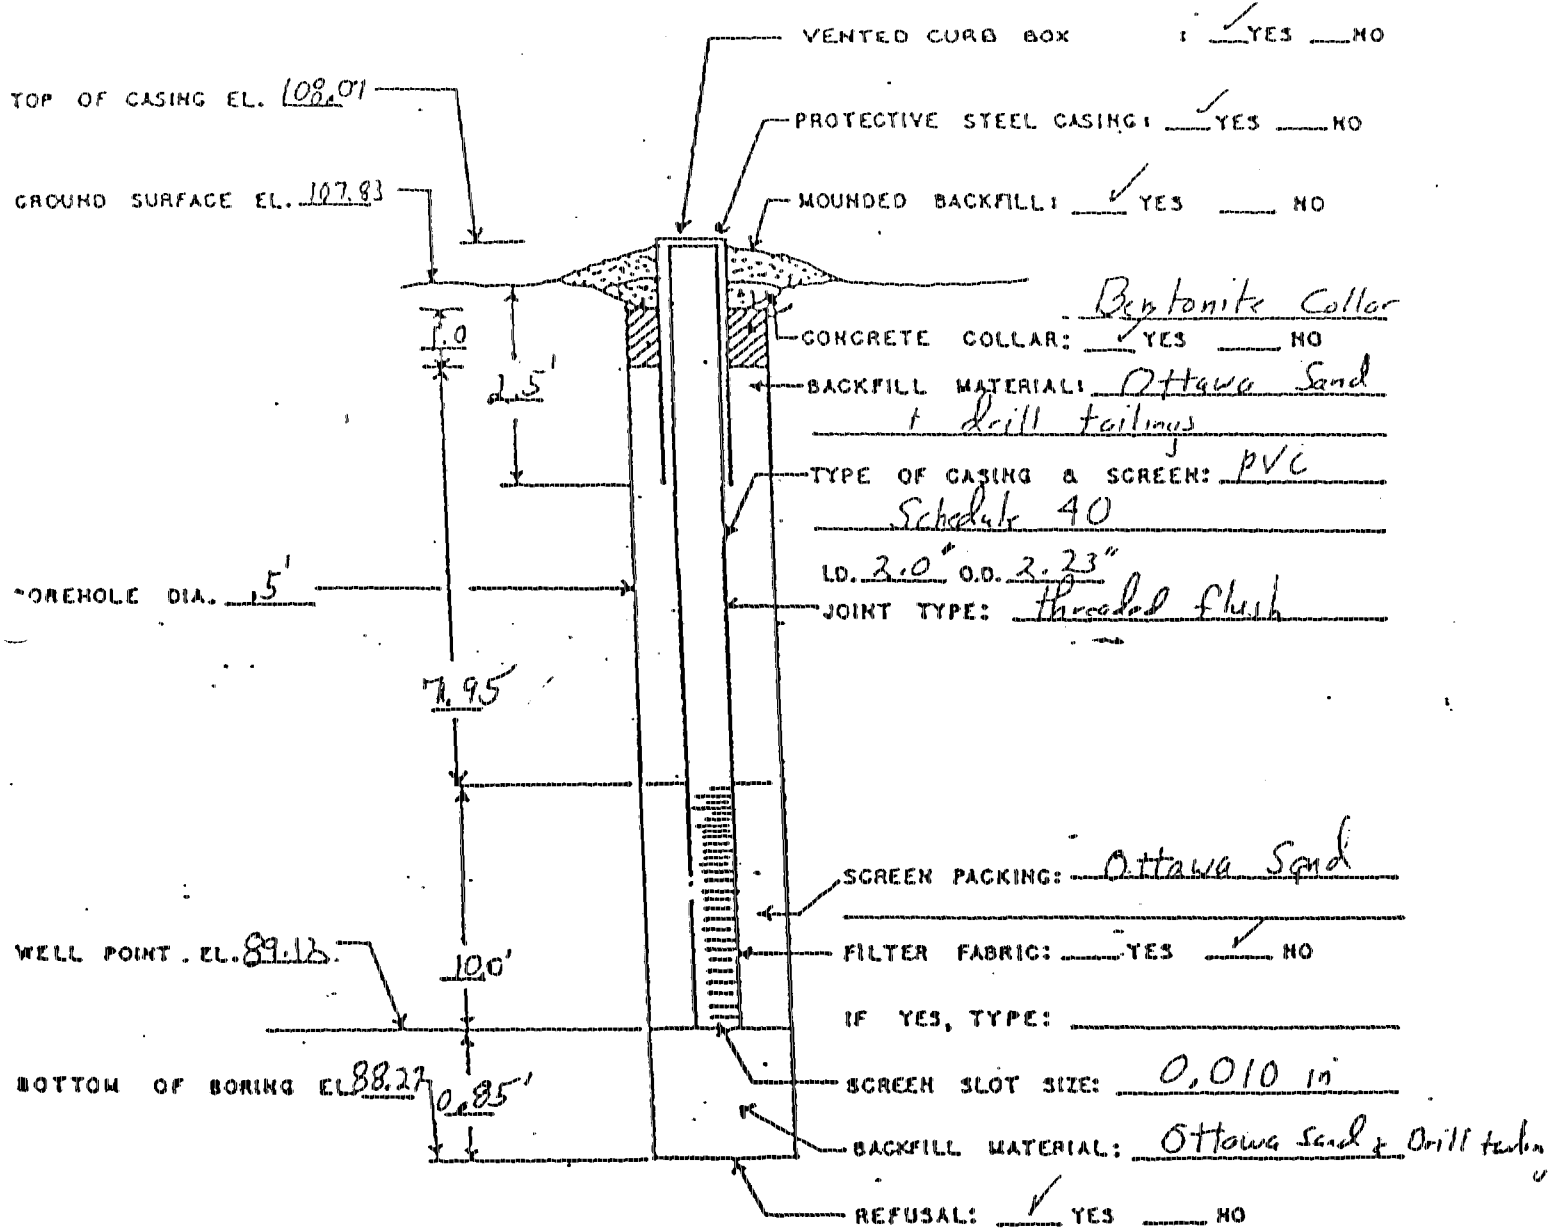 VENTED CURB BOX : ✓ YES ___ NO
TOP OF CASING EL. 108.01
PROTECTIVE STEEL CASING: ✓ YES ___ NO
GROUND SURFACE EL. 107.83
MOUNDED BACKFILL: ✓ YES ___ NO
Bentonite Collar
1.0
CONCRETE COLLAR: ✓ YES ___ NO
BACKFILL MATERIAL: Ottawa Sand
.5'
+ drill tailings
TYPE OF CASING & SCREEN: PVC
Schedule 40
I.D. 2.0" O.D. 2.23"
OREHOLE DIA. .5'
JOINT TYPE: threaded flush
7.95
SCREEN PACKING: Ottawa Sand
WELL POINT. EL.
10.0'
FILTER FABRIC: ___ YES ✓ NO
IF YES, TYPE:
BOTTOM OF BORING EL 88.27
0.85'
SCREEN SLOT SIZE: 0.010 in
BACKFILL MATERIAL: Ottawa Sand & Drill
REFUSAL: ✓ YES ___ NO